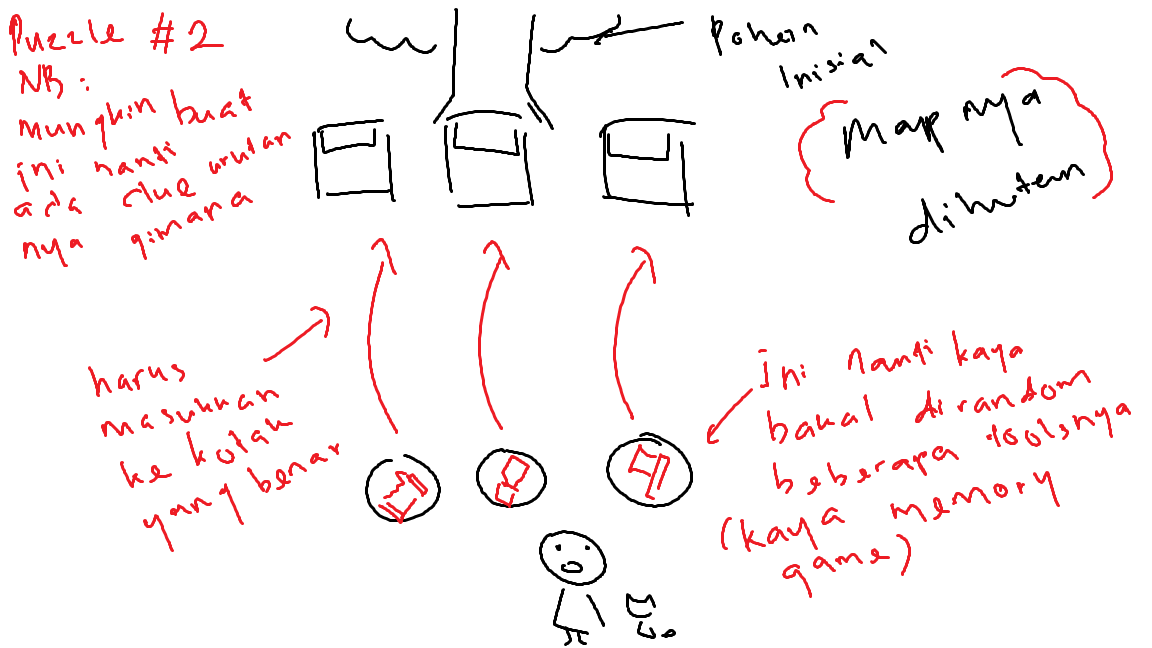 Puzzle #2
NB:
mungkin buat
ini nanti
ada clue urutan
nya gimana
Pohon
Inisial
Mapnya
dihutan
harus
masukkan
ke kotak
yang benar
Ini nanti kaya
bakal dirandom
beberapa toolsnya
(kaya memory
game)